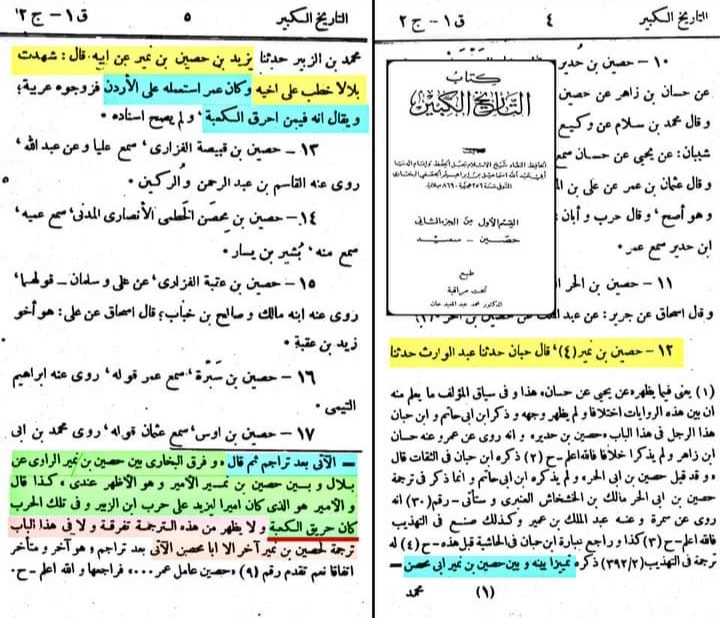 التاريخ الكبير ٤ ق ١ - ج ٢
١٠ - حصين بن حدير
عن حسان بن زاهر عن حصين
وقال محمد بن سلام عن وكيع
شيبان: عن يحيى عن حسان سمع
وقال عثمان بن عمر عن على بن
وهو أصح، وقال حرب وأبان:
ابن حدير سمع عمر.
١١ - حصين بن الحر
وقال اسحاق عن جرير: عن عبد
كتاب
التاريخ الكبير
القسم الأول من الجزء الثانى
حصين - سعيد
طبع
تحت مراقبة
الدكتور محمد عبد المعيد خان
١٢ - حصين بن نمير (٤)، قال حبان حدثنا عبد الوارث حدثنا
(١) يعنى فيما يظهره عن يحيى عن حسان، هذا و فى سياق المؤلف ما يعلم منه
ان بين هذه الروايات اختلافا و لم يظهر وجهه و ذكر ابن ابى حاتم و ابن حبان
هذا الرجل فى هذا الباب «حصين بن حدير» و انه روى عن عمر و عنه حسان
ابن زاهر و لم يذكرا خلافا فالله اعلم - ح (٢) ذكره ابن حبان فى الثقات قال
«و قد قيل حصين بن ابى الحر» و لم يذكره ابن ابى حاتم و انما ذكر فى ترجمة
حصين بن ابى الحر مالك بن الخشخاش العنبرى و ستأتى - رقم (٣٠) انه
روى عن سمرة و عنه عبد الملك بن عمير و كذلك صنع فى التهذيب
فالله اعلم - ح (٣) كذا و راجع عبارة ابن حبان فى الحاشية قبل هذه - ح (٤) له
ترجمة فى التهذيب (٣٩٢/٢) ذكره تمييزا بينه و بين حصين بن نمير ابى محصن -
(١) محمد
التاريخ الكبير ٥ ق ١ - ج ٢
محمد بن الزبير حدثنا يزيد بن حصين بن نمير عن ابيه. قال: شهدت
بلالا خطب على اخيه وكان عمر استعمله على الأردن فزوجوه عربية؛
ويقال انه فيمن احرق الكعبة، ولم يصح اسناده.
١٣ - حصين بن قبيصة الفزارى، سمع عليا وعن عبد الله،
روى عنه القاسم بن عبد الرحمن والركين.
١٤ - حصين بن محصن الخطمى الأنصارى المدنى، سمع عميه،
سمع منه، بُشير بن يسار.
١٥ - حصين بن عقبة الفزارى، عن على وسلمان - قولهما،
روى عنه ابنه مالك وصالح بن خباب؛ قال اسحاق عن على: هو أخو
زيد بن عقبة.
١٦ - حصين بن سَبْرَة، سمع عمر قوله، روى عنه ابراهيم
التيمى.
١٧ - حصين بن اوس، سمع عثمان قوله، روى محمد بن ابى
= الآتى بعد تراجم ثم قال «و فرق البخارى بين حصين بن نمير الراوى عن
بلال و بين حصين بن نمير الأمير و هو الأظهر عندى» كذا قال
و الأمير هو الذى كان اميرا ليزيد على حرب ابن الزبير و فى تلك الحرب
كان حريق الكعبة و لا يظهر من هذه الترجمة تفرقة و لا فى هذا الباب
ترجمة لحصين بن نمير آخر الا ابا محصن الآتى بعد تراجم و هو آخر و متأخر
اتفاقا نعم تقدم رقم (٩) «حصين عامل عمر ...» فراجعها و الله اعلم - ح.